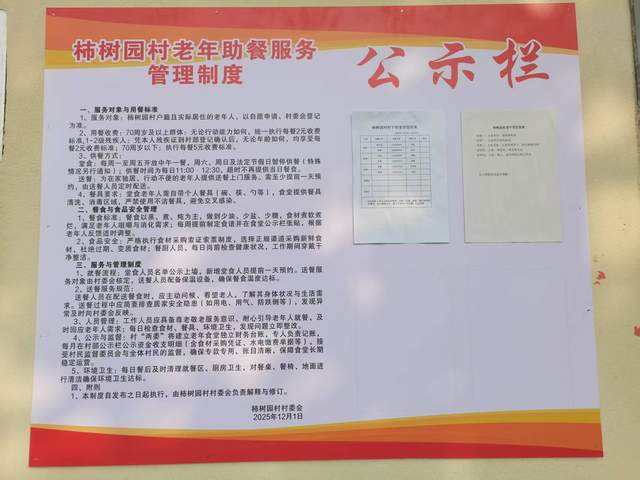 柿树园村老年助餐服务
管理制度
公示栏
一、服务对象与用餐标准
1、服务对象：柿树园村户籍且实际居住的老年人，以自愿申请、村委会登记
为准。
2、用餐收费：70周岁及以上群体：无论行动能力如何，统一执行每餐2元收费
标准，1-2级残疾人：凭本人残疾证到村部登记确认后，无论年龄如何，均享受每
餐2元收费标准；70周岁以下：执行每餐5元收费标准。
3、供餐方式：
堂食：每周一至周五开放中午一餐，周六、周日及法定节假日暂停供餐（特殊
情况另行通知）；供餐时间为每日11:00-12:30，超时不再提供当日餐食。
送餐：为在家独居、行动不便的老年人提供送餐上门服务，需至少提前一天预
约，由送餐人员定时配送。
4、餐具要求：堂食老年人需自带个人餐具（碗、筷、勺等），食堂提供餐具
清洗、消毒区域，严禁使用不洁餐具，避免交叉感染。
二、餐食与食品安全管理
1、餐食标准：餐食以蒸、煮、炖为主，做到少油、少盐、少糖，食材煮软煮
烂，满足老年人咀嚼与消化需求；每周提前制定食谱并在食堂公示栏张贴，根据
老年人反馈适时调整。
2、食品安全：严格执行食材采购索证索票制度，选择正规渠道采购新鲜食
材，杜绝过期、变质食材；餐厨人员，每日岗前检查健康状况，工作期间穿戴干
净整洁。
三、服务与管理制度
1、就餐流程：堂食人员名单公示上墙，新增堂食人员提前一天预约。送餐服
务对象由村委会核定，送餐人员配备保温设备，确保餐食温度达标。
2、送餐服务规范：
送餐人员在配送餐食时，应主动问候、看望老人，了解其身体状况与生活需
求。送餐过程中应简要排查居家安全隐患（如用电、用气、防跌倒等），发现异
常及时向村委会反映。
3、人员管理：工作人员应具备尊老敬老服务意识，耐心引导老年人就餐，及
时回应老年人需求；每日检查食材、餐具、环境卫生，发现问题立即整改。
4、公示与监督：村“两委”将建立老年食堂独立财务台账，专人负责记账，
每月在村部公示栏公示资金收支明细（含食材采购凭证、水电缴费单据等），接
受村民监督委员会与全体村民的监督，确保专款专用、账目清晰，保障食堂长期
稳定运营。
5、环境卫生：每日餐后及时清理就餐区、厨房卫生，对餐桌、餐椅、地面进
行清洁确保环境卫生达标。
四、附则
1、本制度自发布之日起执行，由柿树园村村委会负责解释与修订。
柿树园村村委会
2025年12月1日